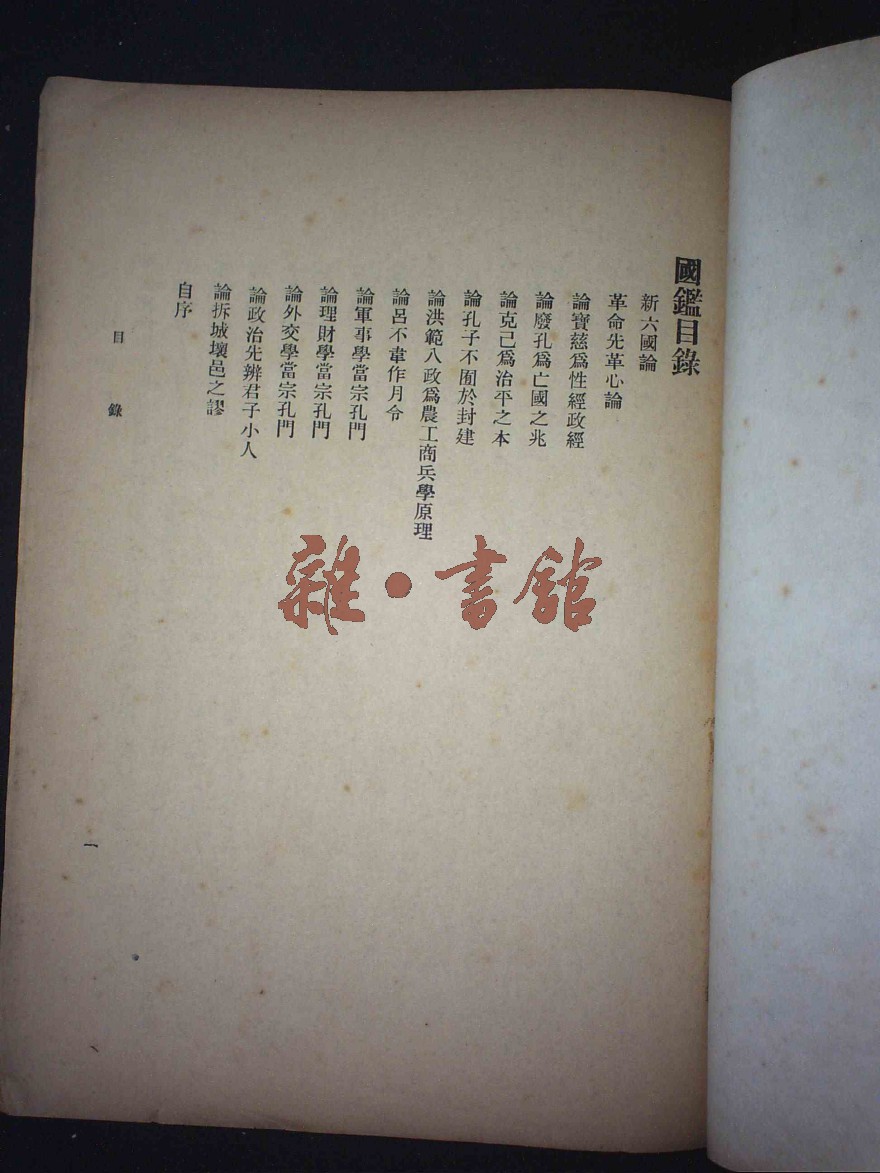 國鑑目錄
新六國論
革命先革心論
論寶慈爲性經政經
論廢孔爲亡國之兆
論克己爲治平之本
論孔子不囿於封建
論洪範八政爲農工商兵學原理
論呂不韋作月令
論軍事學當宗孔門
論理財學當宗孔門
論外交學當宗孔門
論政治先辨君子小人
論拆城壞邑之謬
自序
目錄
一
雜·書館